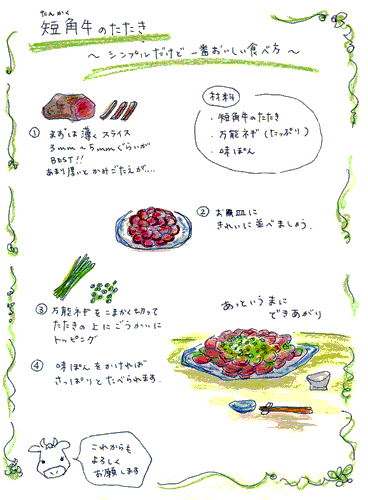 たんかく
短角牛のたたき
～ シンプルだけど 一番おいしい食べ方 ～
材料
・短角牛のたたき
・万能ネギ(たっぷり)
・味ぽん
① まずは 薄く スライス
3mm～5mmぐらいが
BEST!!
あまり厚いと かみごたえが…
② お皿に
きれいに 並べましょう.
③ 万能ネギを こまかく切って
たたきの 上に ごうかいに
トッピング
あっという まに
できあがり
④ 味ぽんをかければ
さっぱりと たべられます.
これからも
よろしく
お願します